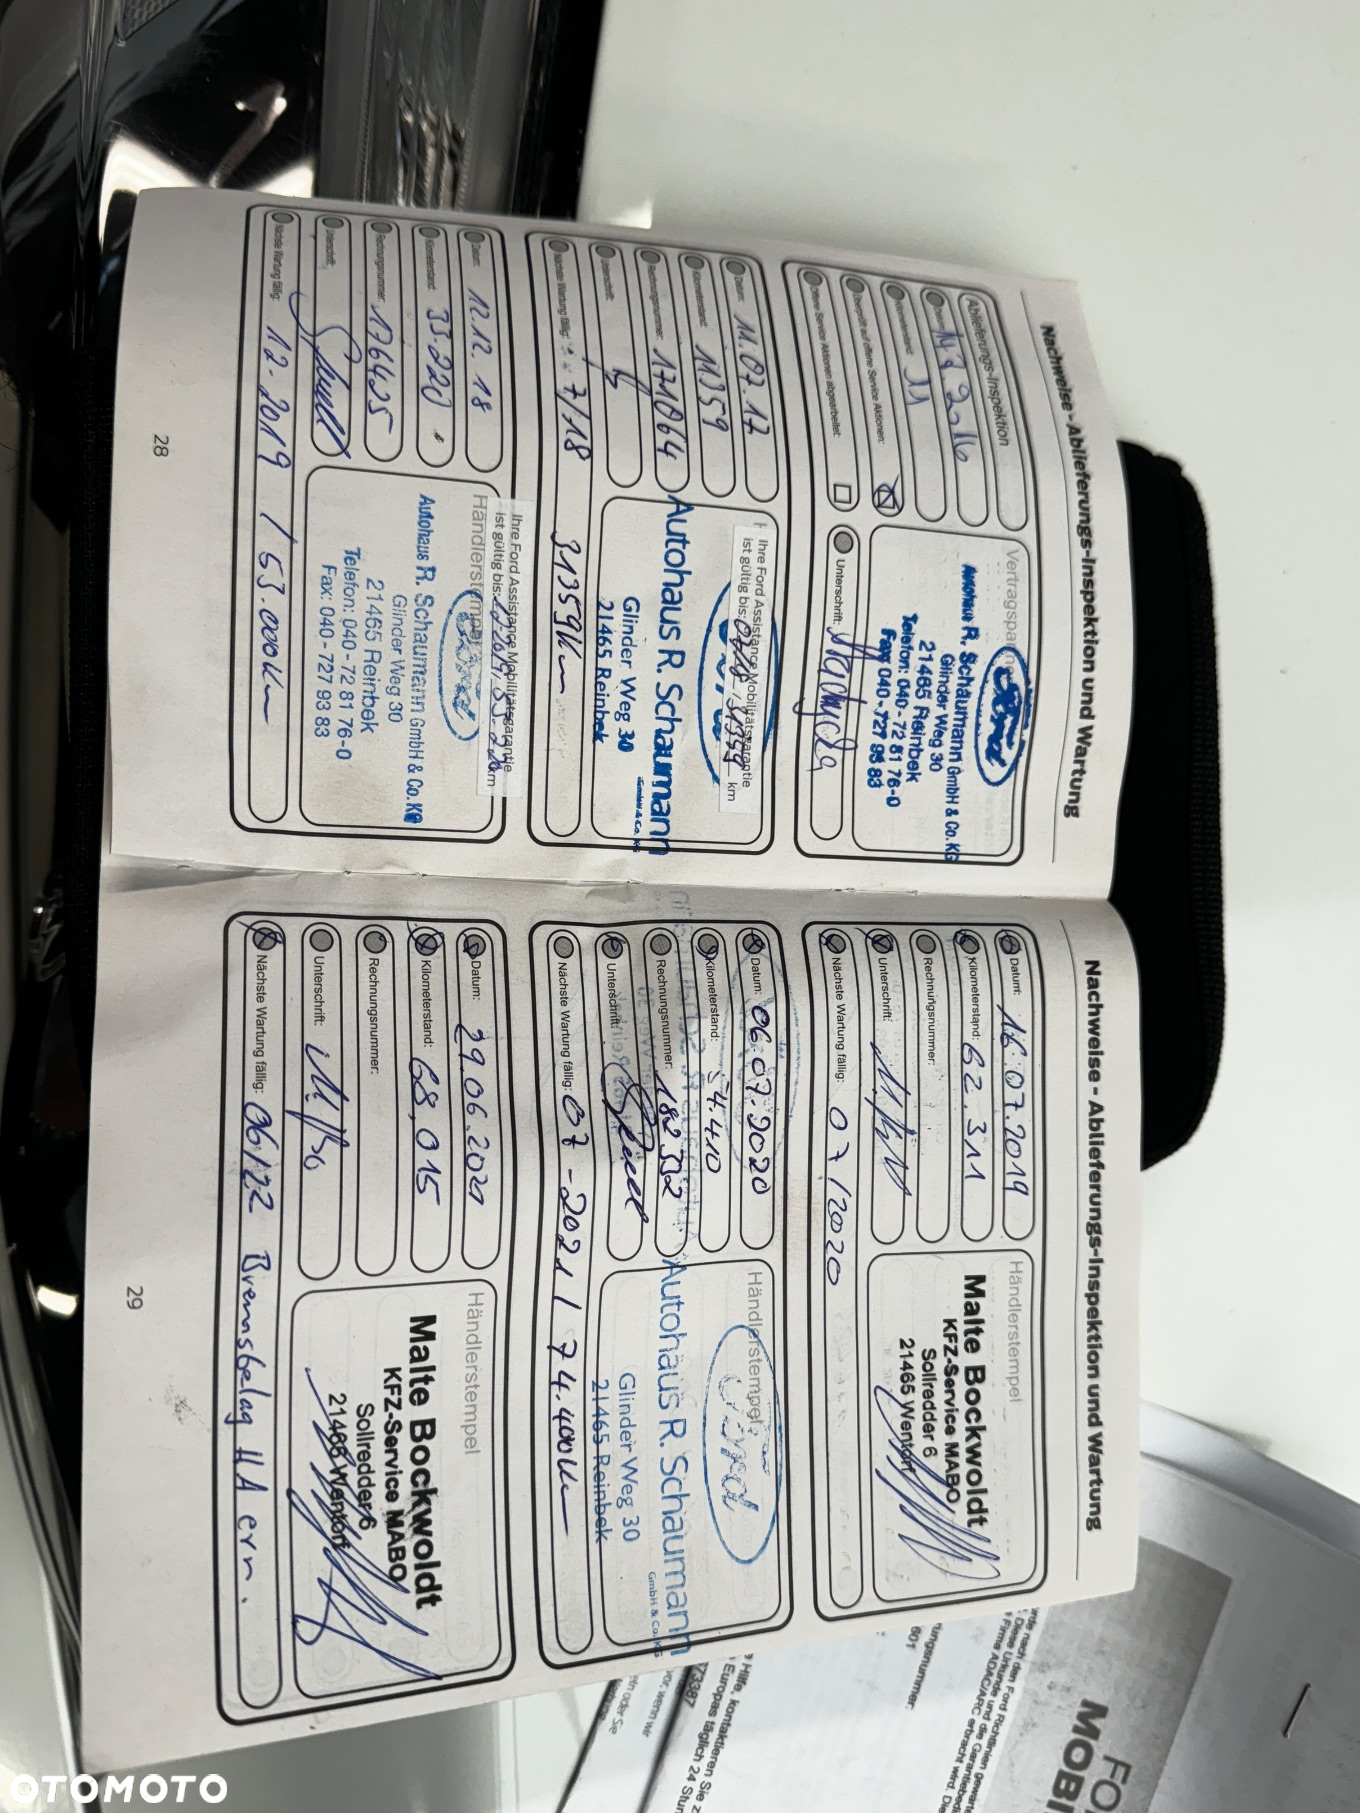 Nachweise - Ablieferungs-Inspektion und Wartung
Ablieferungs-Inspektion
Kilometerstand: 11
Überprüft auf offene Service Aktionen:
Offene Service Aktionen abgearbeitet:
Ford
Autohaus R. Schaumann GmbH & Co. KG
Glinder Weg 30
21465 Reinbek
Telefon: 040 - 72 81 76-0
Fax: 040 - 727 93 83
Unterschrift:
Datum: 11.07.17
Kilometerstand: 11359
Rechnungsnummer: 171064
Unterschrift:
Nächste Wartung fällig: 7/18 31359 km
Ihre Ford Assistance Mobilitätsgarantie
ist gültig bis: km
Autohaus R. Schaumann
GmbH & Co. KG
Glinder Weg 30
21465 Reinbek
Datum: 12.12.18
Kilometerstand: 33.220
Rechnungsnummer: 176425
Unterschrift:
Nächste Wartung fällig: 12.2019 / 53.000km
Ihre Ford Assistance Mobilitätsgarantie
ist gültig bis: km
Händlerstempel
Ford
Autohaus R. Schaumann GmbH & Co. KG
Glinder Weg 30
21465 Reinbek
Telefon: 040 - 72 81 76-0
Fax: 040 - 727 93 83
28
Nachweise - Ablieferungs-Inspektion und Wartung
Datum: 16.07.2019
Kilometerstand: 62.311
Rechnungsnummer:
Unterschrift:
Nächste Wartung fällig: 07/2020
Händlerstempel
Malte Bockwoldt
KFZ-Service MABO
Sollredder 6
21465 Wentorf
Datum: 06.07.2020
Kilometerstand: 54.410
Rechnungsnummer: 182332
Unterschrift:
Nächste Wartung fällig: 07-2021 / 74.400km
Händlerstempel
Ford
Autohaus R. Schaumann
GmbH & Co. KG
Glinder Weg 30
21465 Reinbek
Datum: 29.06.2021
Kilometerstand: 68,015
Rechnungsnummer:
Unterschrift:
Nächste Wartung fällig: 06/22 Bremsbelag HA ern.
Händlerstempel
Malte Bockwoldt
KFZ-Service MABO
Sollredder 6
21465 Wentorf
29
OTOMOTO